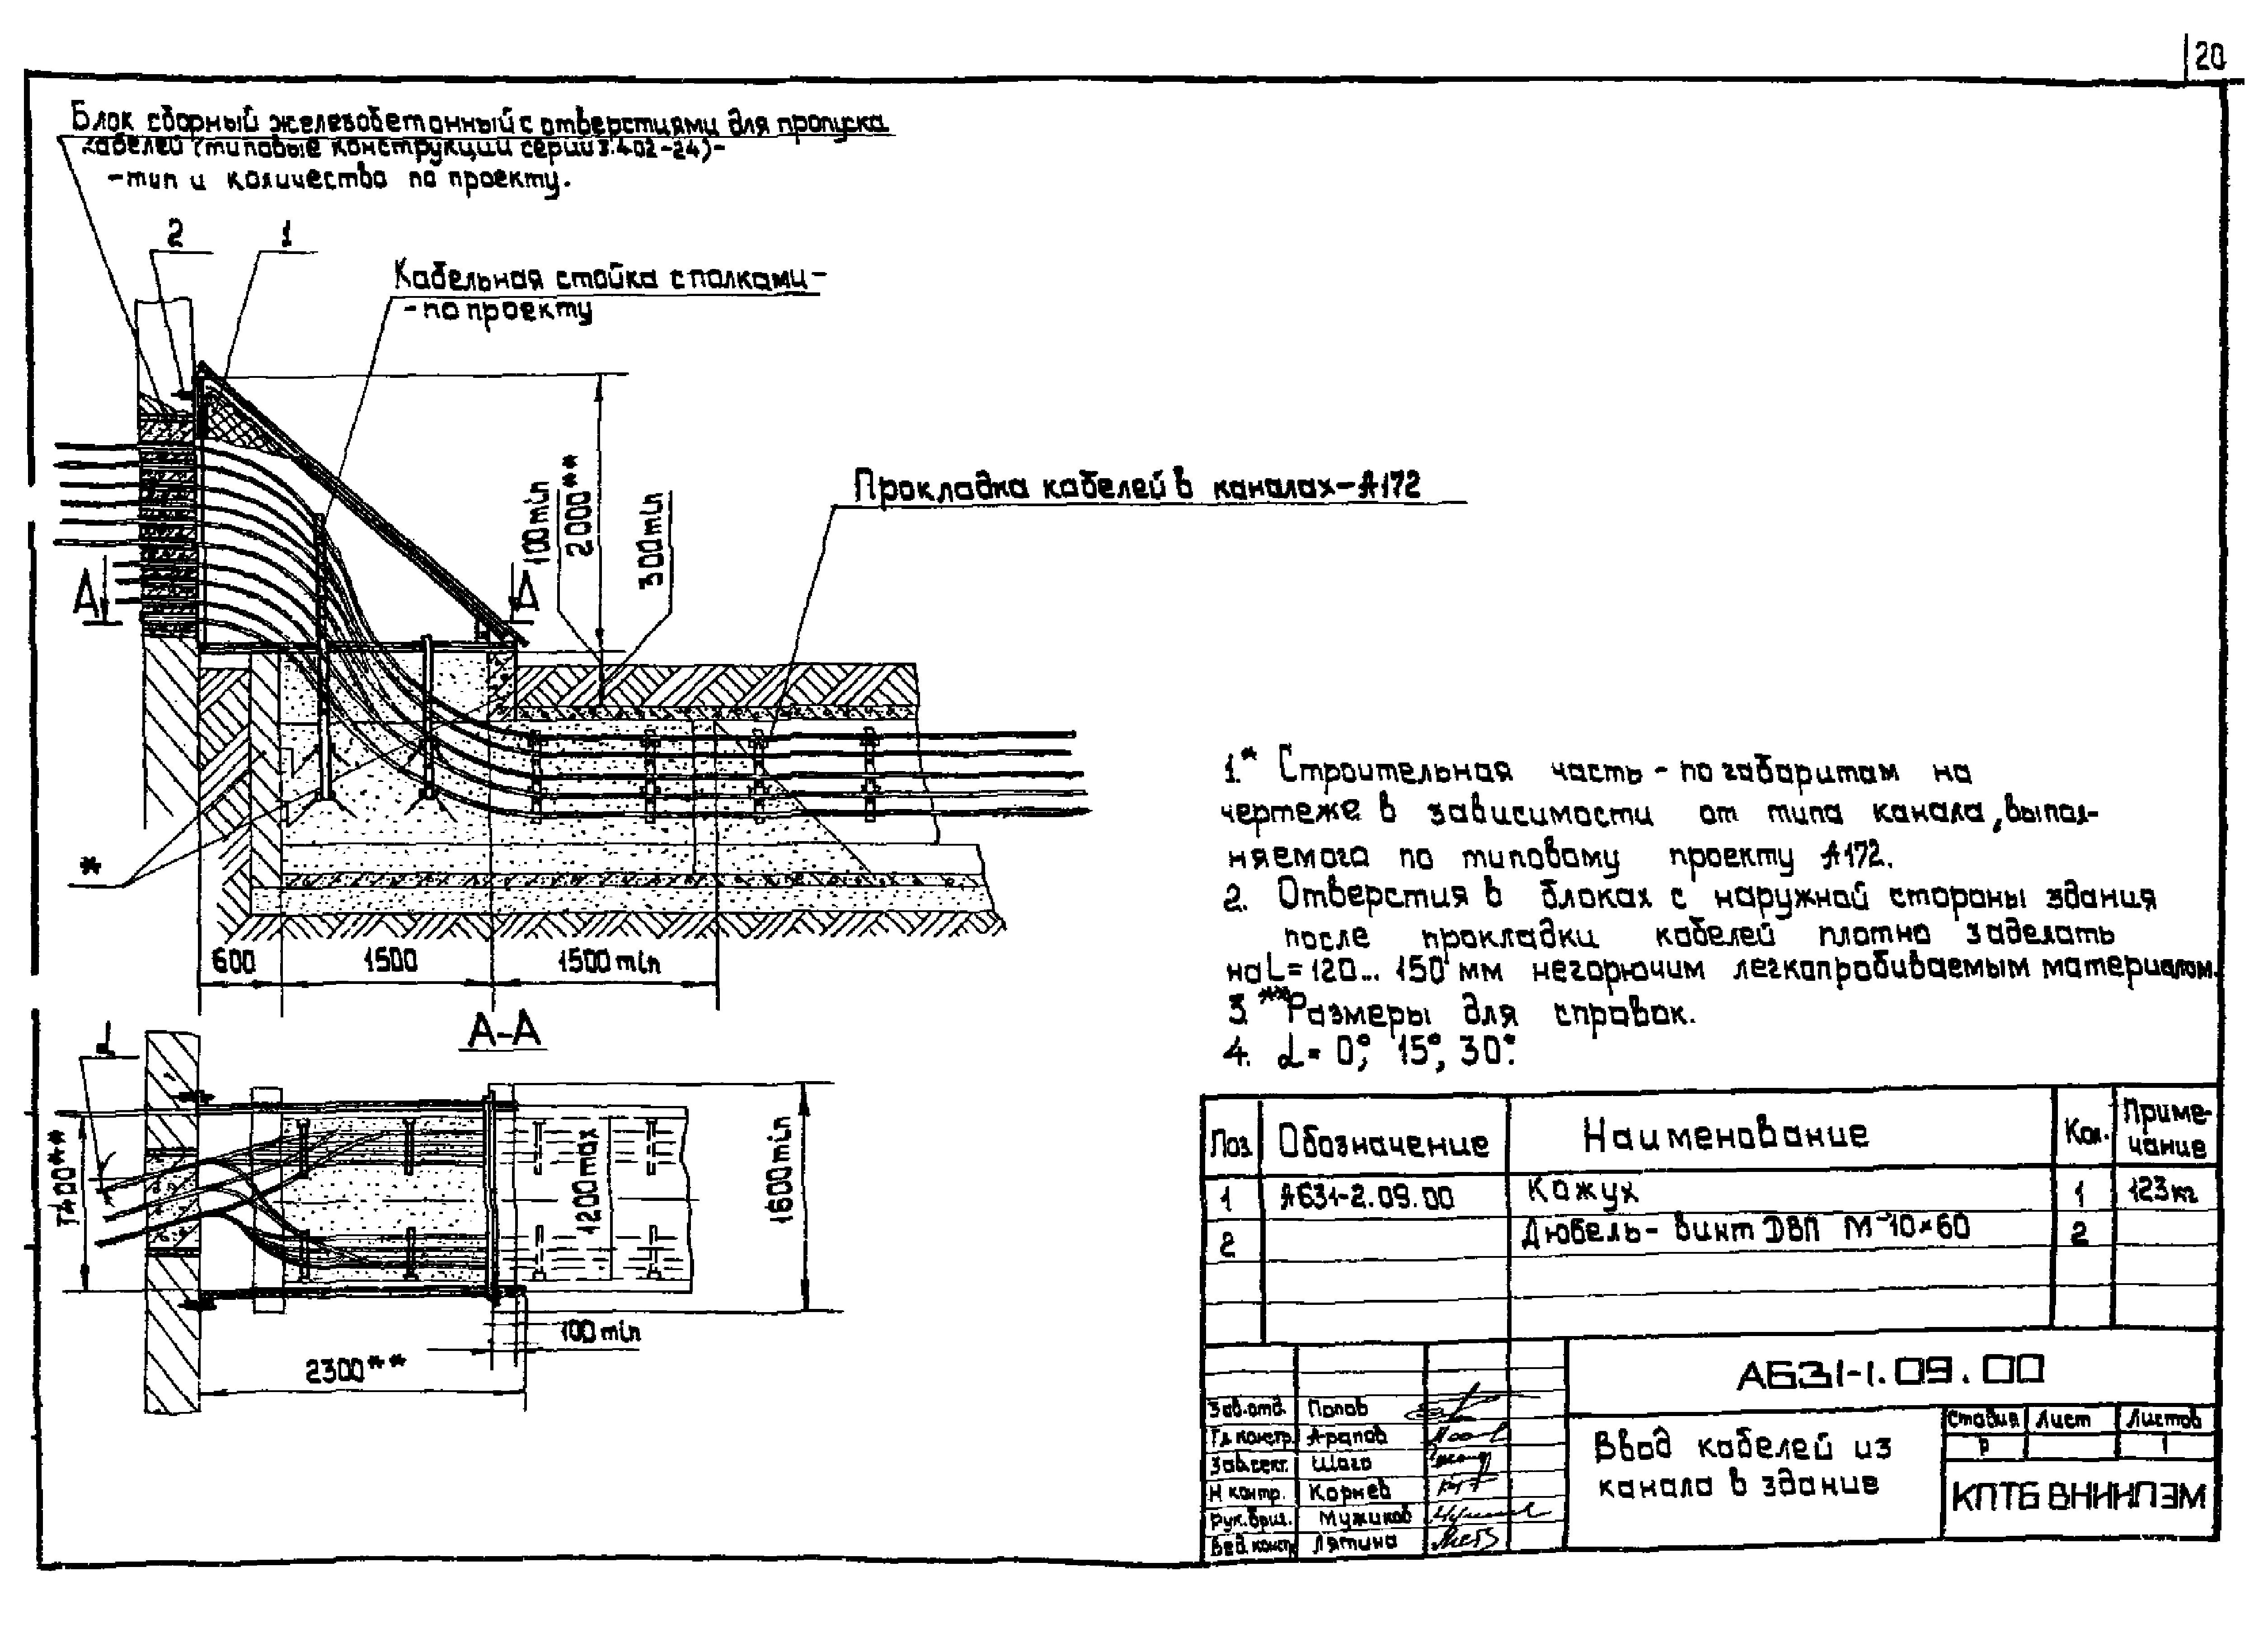 20
Блок сборный железобетонный с отверстиями для пропуска
кабелей (типовые конструкции серии 3.402-24)-
-тип и количество по проекту.
2
1
Кабельная стойка с полками-
-по проекту
100 min
2000**
300 min
Прокладка кабелей в каналах-А172
А
А
*
600
1500
1500 min
А-А
α
1400**
1200 max
1600 min
100 min
2300**
1.* Строительная часть - по габаритам на
чертеже в зависимости от типа канала, выпол-
няемого по типовому проекту А172.
2. Отверстия в блоках с наружной стороны здания
после прокладки кабелей плотно заделать
на L=120... 150 мм негорючим легкопробиваемым материалом.
3. **Размеры для справок.
4. α= 0°, 15°, 30°.
Поз. Обозначение Наименование Кол. Приме-
чание
1 А631-2.09.00 Кожух 1 123 кг
2 Дюбель- винт ДВП М-10×60 2
А631-1.09.00
Зав.отд. Попов
Гл. констр. Арапов
Зав.сект. Шаго
Н контр. Корнев
Рук. бриг. Мужиков
Вед. констр. Лямина
Ввод кабелей из
канала в здание
Стадия Лист Листов
Р 1
КПТБ ВНИИПЭМ